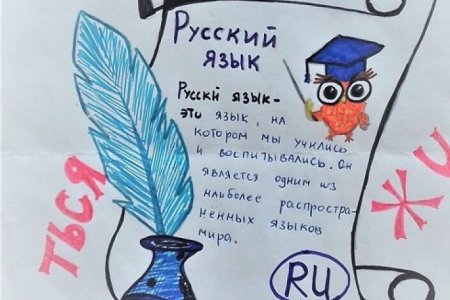 Русский
язык
Русскй язык-
это язык, на
котором мы учились
и воспитывались. Он
является одним из
наиболее распростра-
нённых языков
мира.
RU
ТЬСЯ